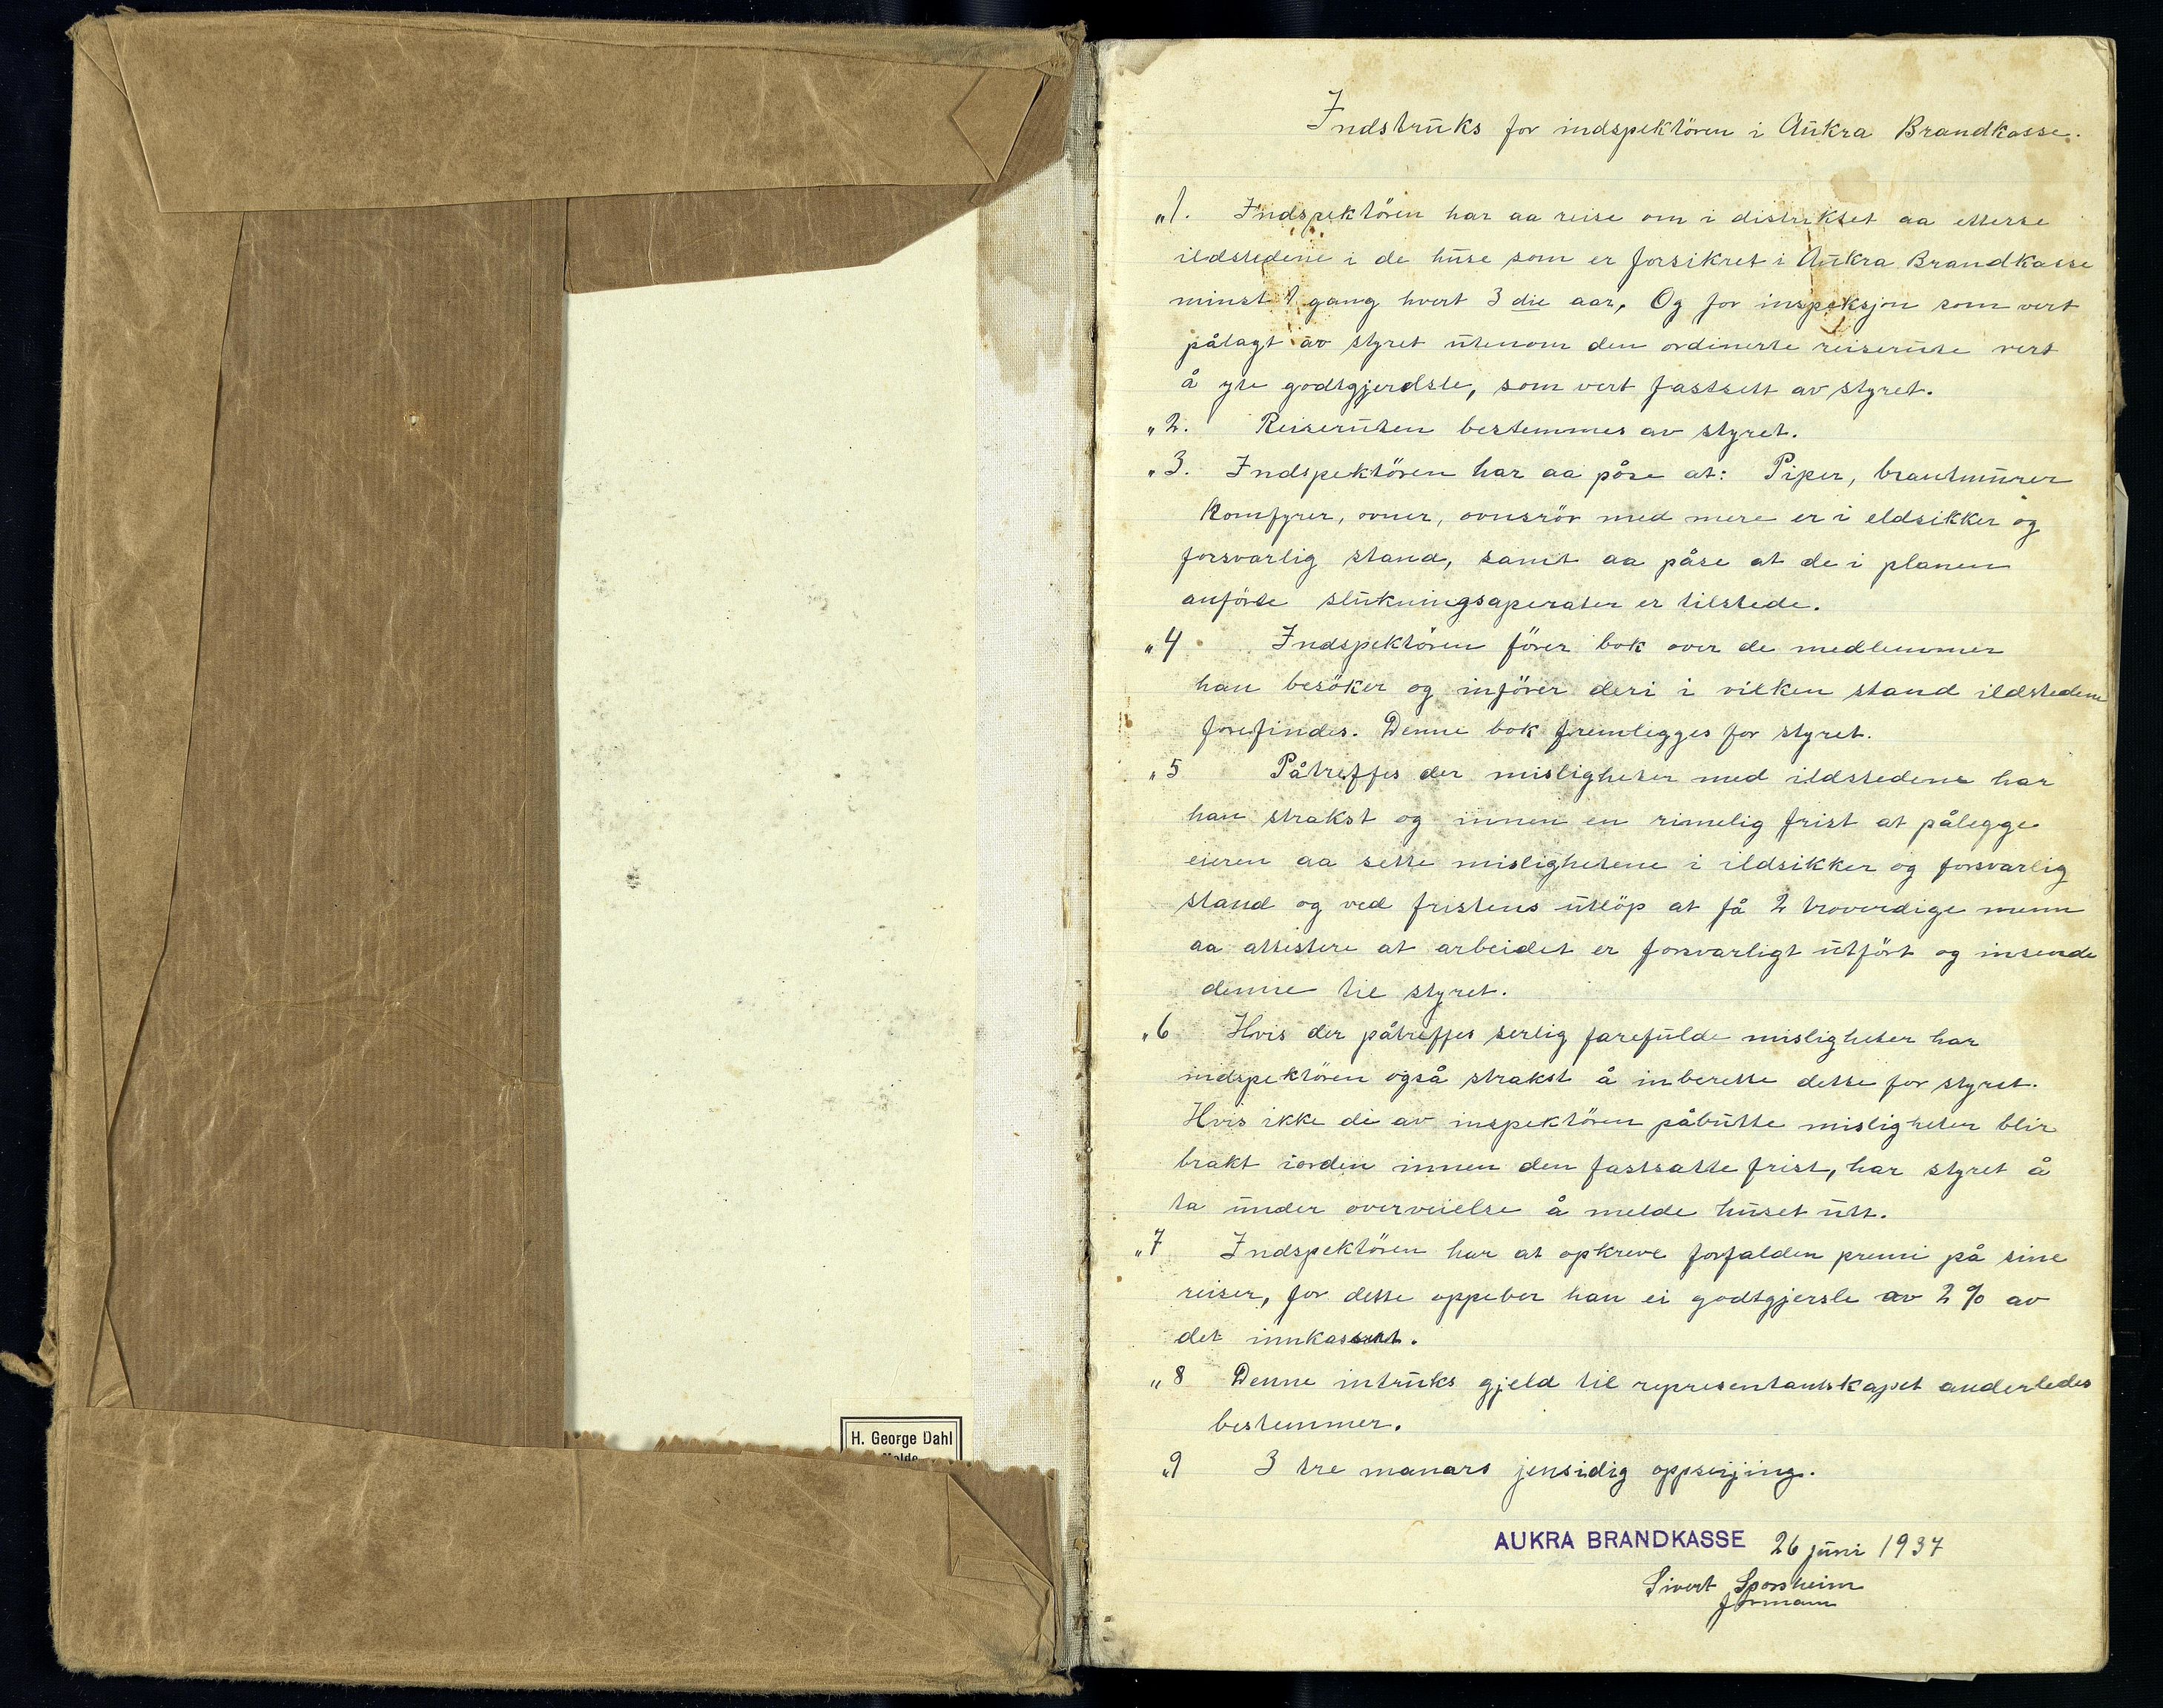 H. George Dahl
Molde
Indstruks for indspektören i Aukra Brandkasse.
„1. Indspektören har aa reise om i distriktet aa etterse
ildstedene i de huse som er forsikret i Aukra Brandkasse
minst 1 gang hvert 3 die aar, Og for inspeksjon som vert
pålagt av styret utenom den ordinerte reiserute vert
å yte godtgjerdsle, som vert fastsett av styret.
„2. Reiseruten bestemmes av styret.
„3. Indspektören har aa påse at: Piper, brantmurer
Komfyrer, ovner, ovnsrör med mere er i eldsikker og
forsvarlig stand, samt aa påse at de i planen
anförte slukningsaperater er tilstede.
„4 Indspektören förer bok over de medlemmer
han besöker og införer deri i vilken stand ildstedene
forefindes. Denne bok fremlegges for styret.
„5 Påtreffes der misligheter med ildstedene har
han strakst og innen en rimelig frist at pålegge
eieren aa sette mislighetene i ildsikker og forsvarlig
stand og ved fristens utlöp at få 2 troverdige menn
aa attestere at arbeidet er forsvarligt utfört og insende
denne til styret.
„6 Hvis der påtreffes serlig farefulde misligheter har
indspektören også strakst å inberette dette for styret.
Hvis ikke de av inspektören påbutte misligheter blir
brakt iorden innen den fastsatte frist, har styret å
ta under overveielse å melde huset utt.
„7 Indspektören har at opkreve forfalden premi på sine
reiser, for dette oppeber han ei godtgjersle av 2 % av
det innkassert.
„8 Denne intruks gjeld til representantskapet anderledes
bestemmer.
„9 3 tre manars jensidig oppseijing.
AUKRA BRANDKASSE 26 juni 1937
Sivert Sporsheim
formann